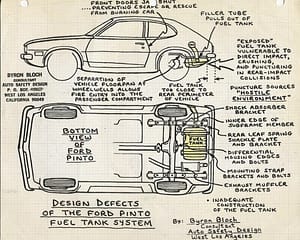 FRONT DOORS JAM SHUT
...PREVENTING ESCAPE OR RESCUE
FROM BURNING CAR
FILLER TUBE
PULLS OUT OF
FUEL TANK
"EXPOSED"
FUEL TANK
VULNERABLE TO
DIRECT IMPACT,
CRUSHING,
AND PUNCTURING
IN REAR-IMPACT
COLLISIONS
BYRON BLOCH
CONSULTANT
AUTO SAFETY DESIGN
WEST LOS ANGELES
CALIFORNIA 90049
SEPARATION OF
VEHICLE FLOORPAN AT
WHEELWELLS ALLOWS
FIRE ENTRY INTO THE
PASSENGER COMPARTMENT
FUEL TANK
TOO CLOSE TO
REAR PERIMETER
OF VEHICLE
PUNCTURE SOURCES
"HOSTILE
ENVIRONMENT"
SHOCK ABSORBER
BRACKET
INNER EDGE OF
SUBFRAME MEMBER
REAR LEAF SPRING
SHACKLE PLATE
AND BRACKET
DIFFERENTIAL
HOUSING EDGES
AND BOLTS
MOUNTING STRAP
BRACKETS AND BOLTS
EXHAUST MUFFLER
BRACKETS
BOTTOM
VIEW
OF
FORD
PINTO
FUEL
TANK
INADEQUATE
CONSTRUCTION
OF THE FUEL TANK
DESIGN DEFECTS
OF THE FORD PINTO
FUEL TANK SYSTEM
By: Byron Bloch
Consultant
Auto Safety Design
West Los Angeles